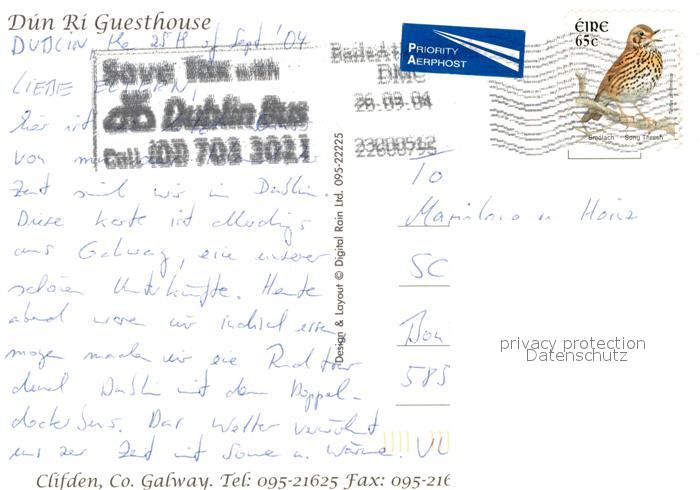 Dún Rí Guesthouse
DUBLIN, the 25th of Sept '04
LIEBE ELTERN!
Save Tax with
Dublin Bus
Call (01) 703 3021
PRIORITY
AERPHOST
26.09.04
ÉIRE
65c
Smólach Song Thrush
hier ist
von
Zeit sind wir in Dublin.
Diese Karte ist allerdings
aus Galway, eine unserer
schönen Unterkünfte. Heute
abend waren wir indisch essen
morgen machen wir eine Rundtour
durch Dublin mit dem Doppel-
deckerbus. Das Wetter verwöhnt
uns zur Zeit mit Sonne u. Wärme.
Design & Layout © Digital Rain Ltd. 095-22225
To
SC
585
privacy protection
Datenschutz
Clifden, Co. Galway. Tel: 095-21625 Fax: 095-216